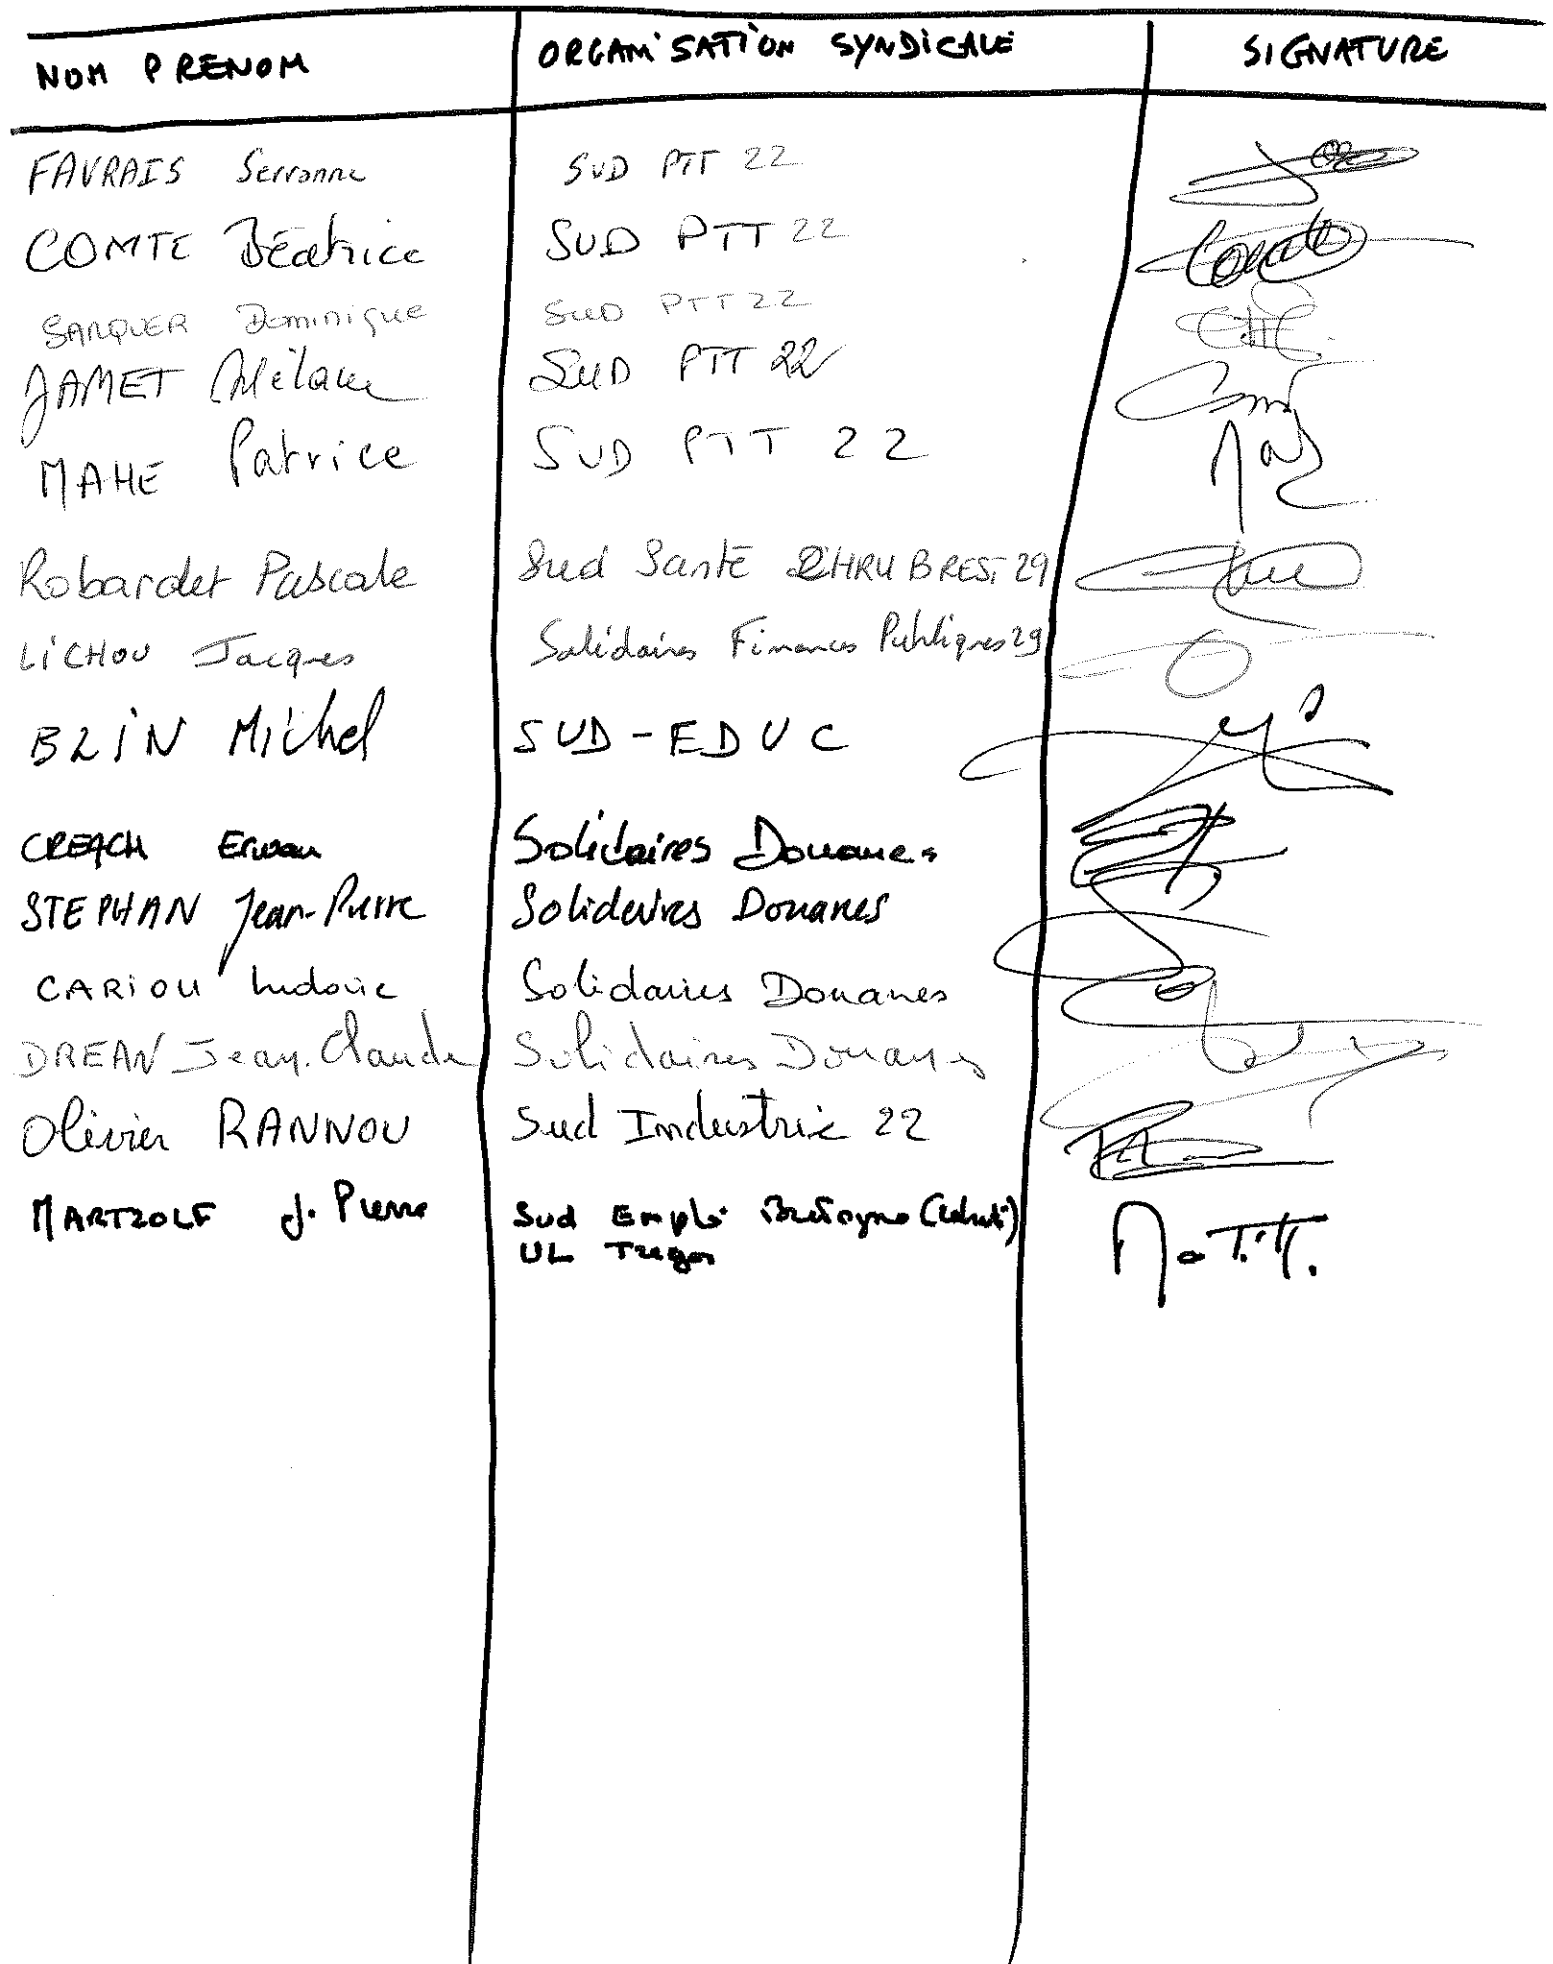 NOM PRENOM ORGANISATION SYNDICALE SIGNATURE
FAVRAIS SUD PTT 22
COMTE Béatrice SUD PTT 22
SANQUER Dominique SUD PTT 22
JAMET Mélanie SUD PTT 22
MAHE Patrice SUD PTT 22
Robardet Pascale Sud Santé CHRU BREST 29
LiCHOU Jacques Solidaires Finances Publiques 29
BLIN Michel SUD-EDUC
CREACH Erwan Solidaires Douanes
STEPHAN Jean-Pierre Solidaires Douanes
CARIOU Ludovic Solidaires Douanes
DREAN Jean-Claude Solidaires Douanes
Olivier RANNOU Sud Industrie 22
MARTZOLF J. Pierre Sud Emploi Bretagne
UL Tregor